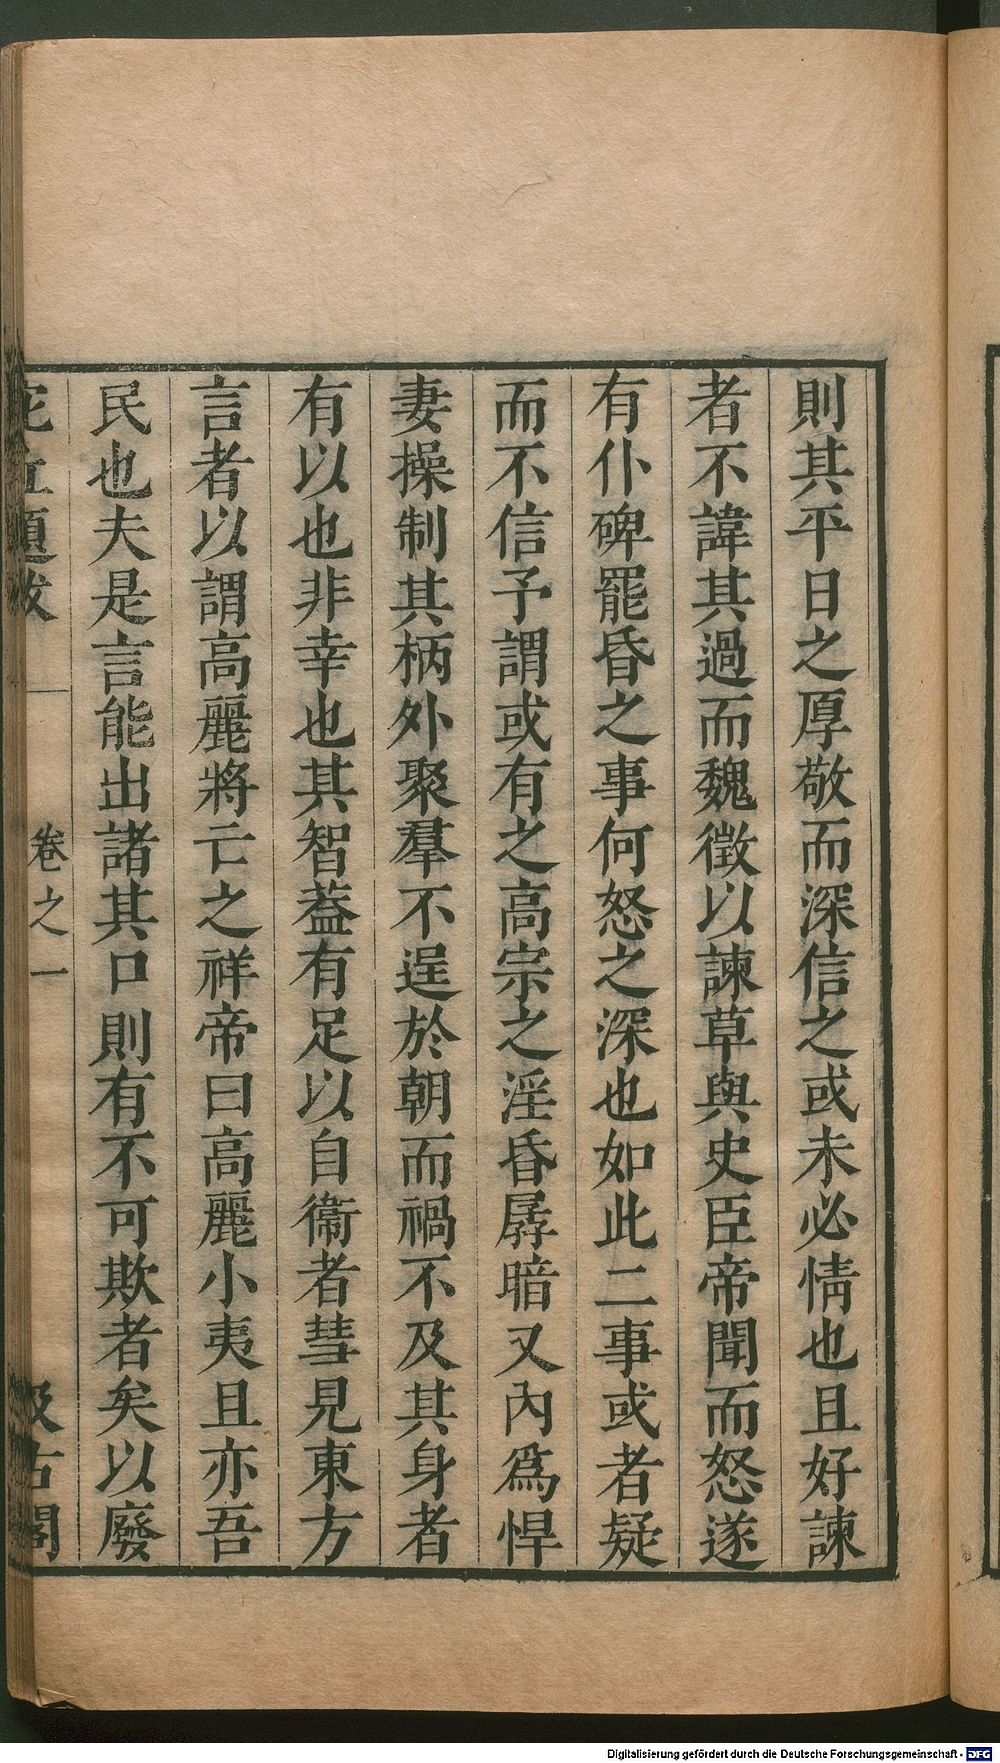 則其平日之厚敬而深信之或未必情也且好諫
者不諱其過而魏徵以諫草與史臣帝聞而怒遂
有仆碑罷昏之事何怒之深也如此二事或者疑
而不信予謂或有之高宗之淫昏孱暗又內爲悍
妻操制其柄外聚羣不逞於朝而禍不及其身者
有以也非幸也其智葢有足以自衞者彗見東方
言者以謂高麗將亡之祥帝曰高麗小夷且亦吾
民也夫是言能出諸其口則有不可欺者矣以廢
題跋 卷之一 汲古閣
Digitalisierung gefördert durch die Deutsche Forschungsgemeinschaft - DFG